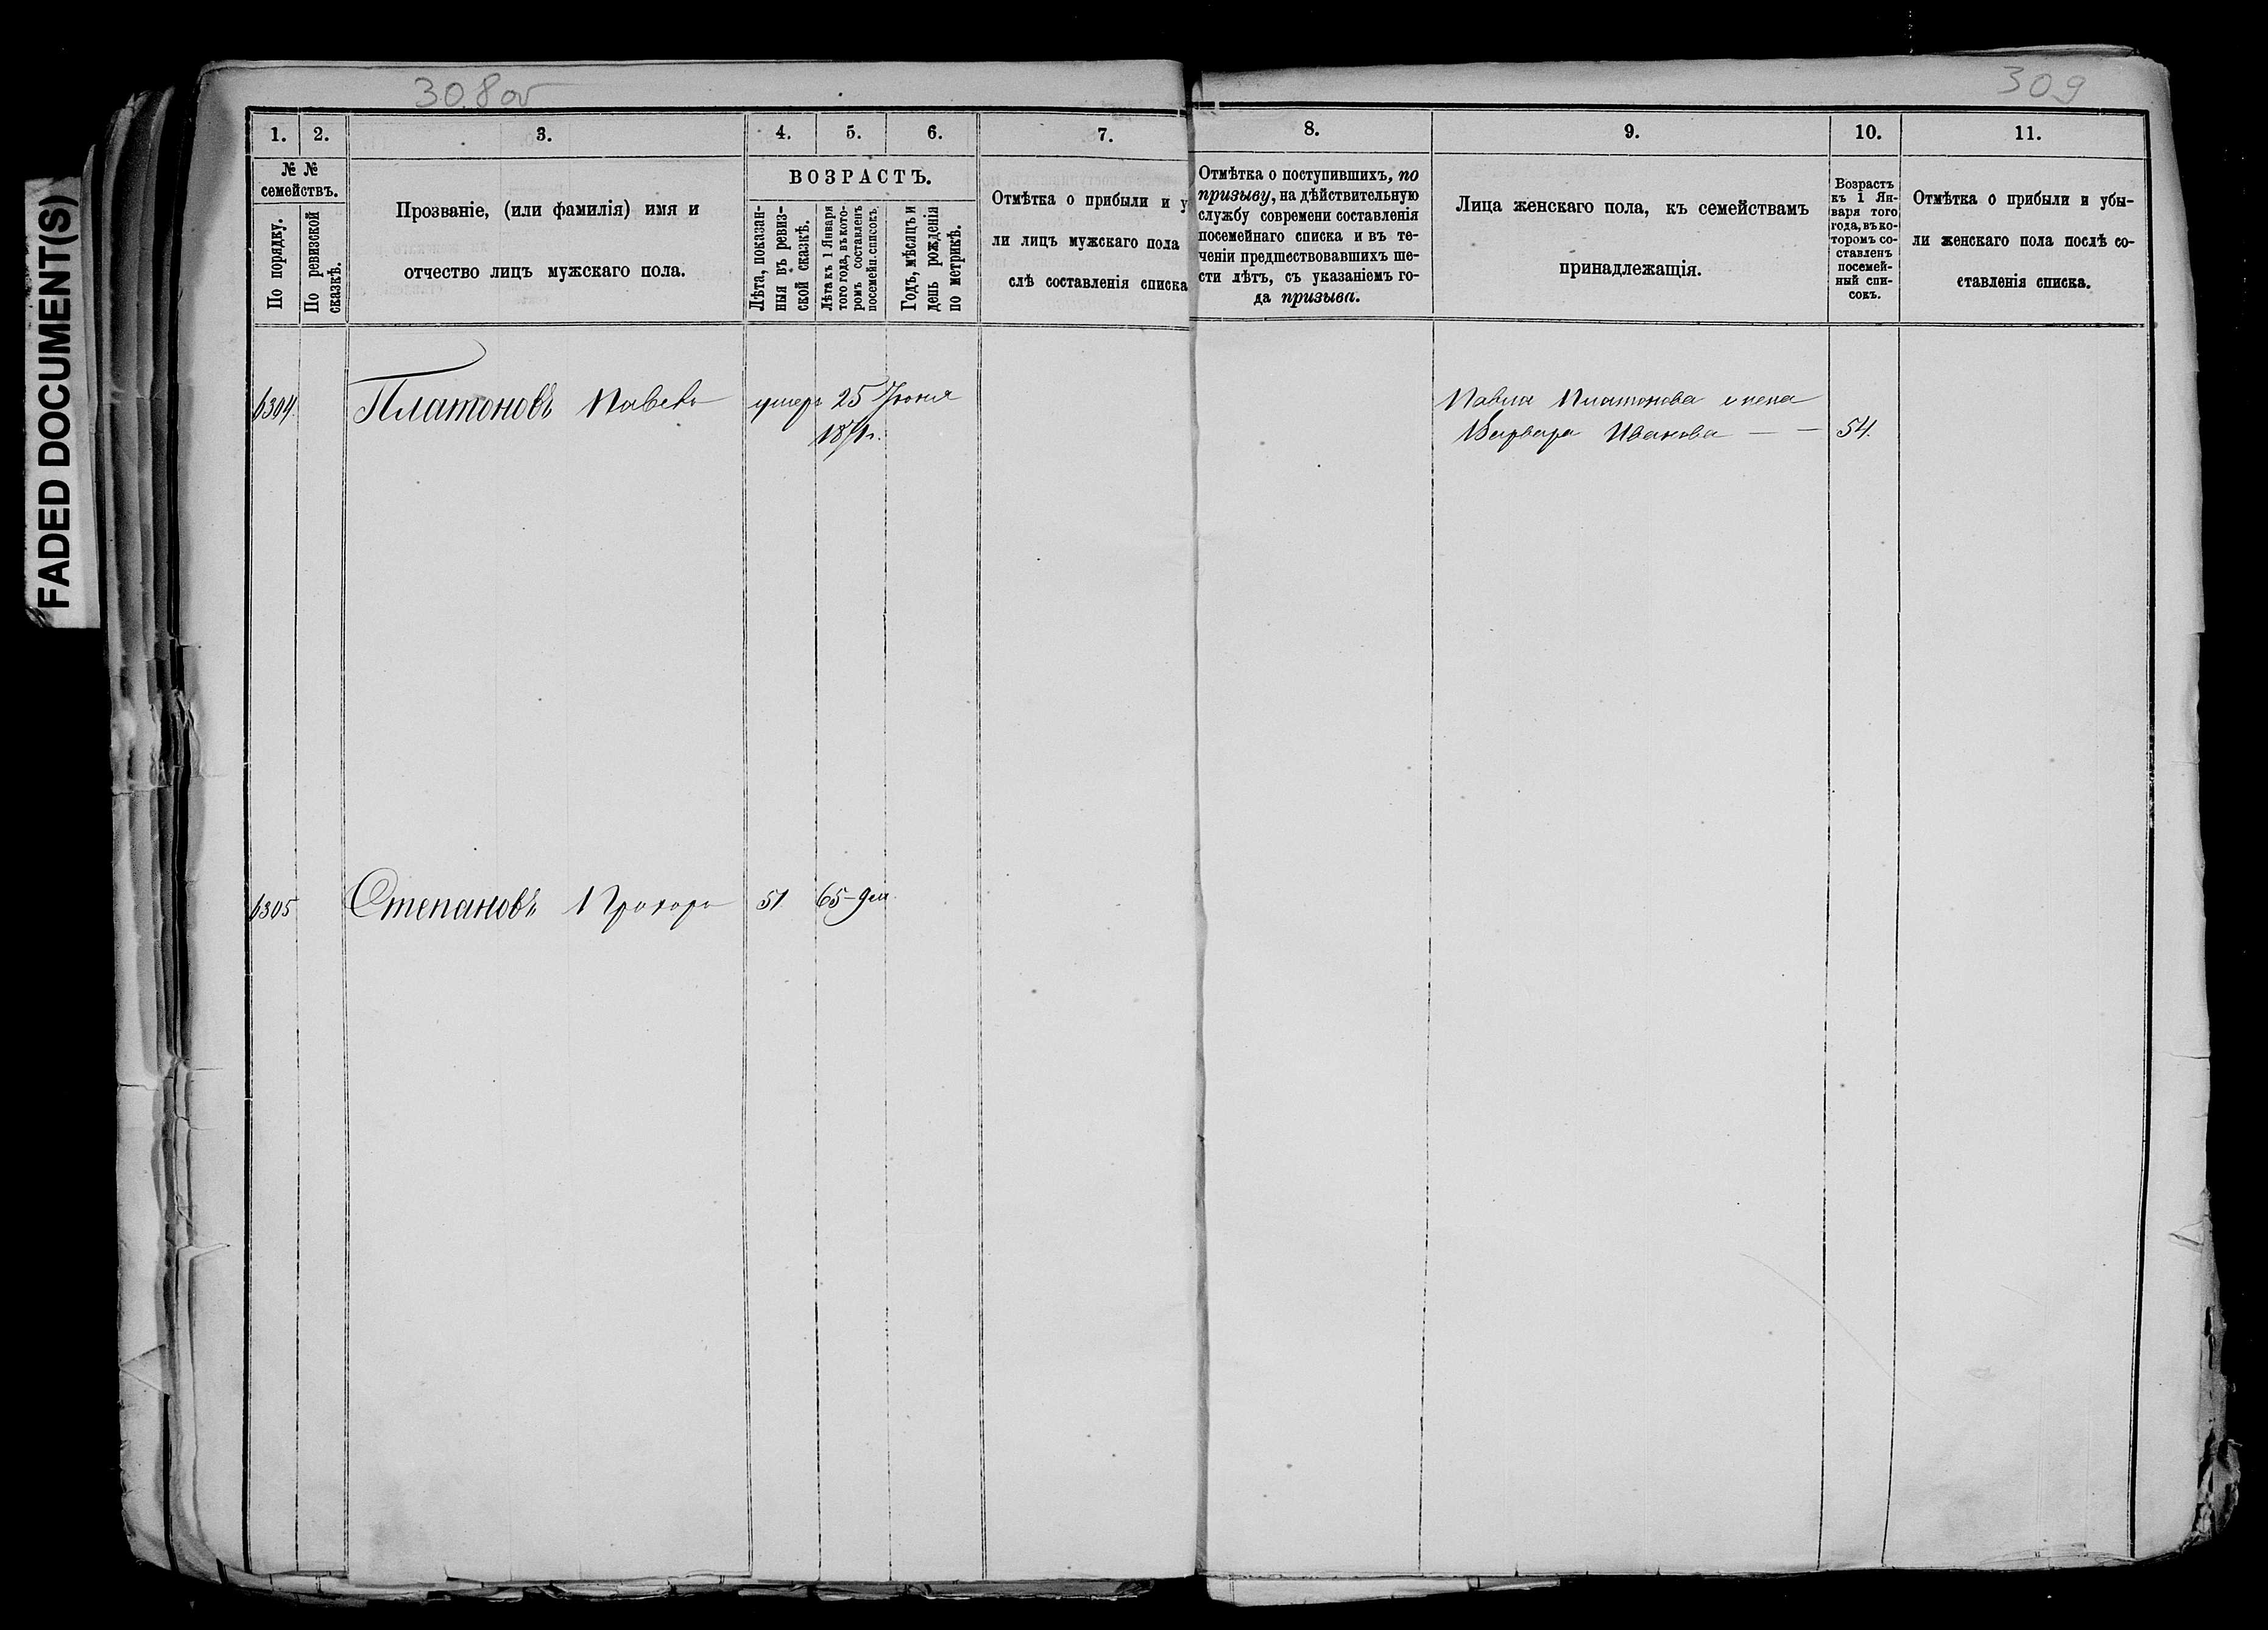 FADED DOCUMENT(S)
308 об
309
1. 2. 3. 4. 5. 6. 7. 8. 9. 10. 11.
№ №
семействъ.
По порядку.
По ревизской
сказкѣ.
Прозваніе, (или фамилія) имя и
отчество лицъ мужскаго пола.
ВОЗРАСТЪ.
Лѣта, показан-
ныя въ ревиз-
ской сказкѣ.
Лѣта къ 1 Января
того года, въ кото-
ромъ составленъ
посемейн. списокъ.
Годъ, мѣсяцъ и
день рожденія
по метрикѣ.
Отмѣтка о прибыли и у
ли лицъ мужскаго пола
слѣ составленія списка
Отмѣтка о поступившихъ, по
призыву, на дѣйствительную
службу современи составленія
посемейнаго списка и въ те-
ченіи предшествовавшихъ ше-
сти лѣтъ, съ указаніемъ го-
да призыва.
Лица женскаго пола, къ семействамъ
принадлежащія.
Возрастъ
къ 1 Ян-
варя того
года, въ ко-
торомъ со-
ставленъ
посемей-
ный спи-
сокъ.
Отмѣтка о прибыли и убы-
ли женскаго пола послѣ со-
ставленія списка.
6304. Платоновъ Павелъ умеръ 25 Іюня
1871г.
Павла Платонова жена
Варвара Иванова — — 54.
6305 Степановъ Прохоръ 51 65-9м.